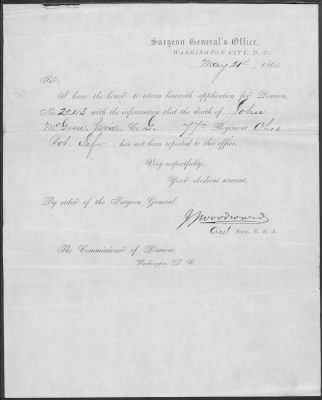 Surgeon General's Office,
WASHINGTON CITY, D. C.,
May 21st, 186
Sir:
I have the honor to return herewith application for Pension,
No. 20413 with the information that the death of John
Co. G. 77th Regiment Ohio
Vol. has not been reported to this office.
Very respectfully,
Your obedient servant,
By order of the Surgeon General:
J J Woodward
Asst. Surg. U. S. A.
The Commissioner of Pensions,
Washington, D. C.